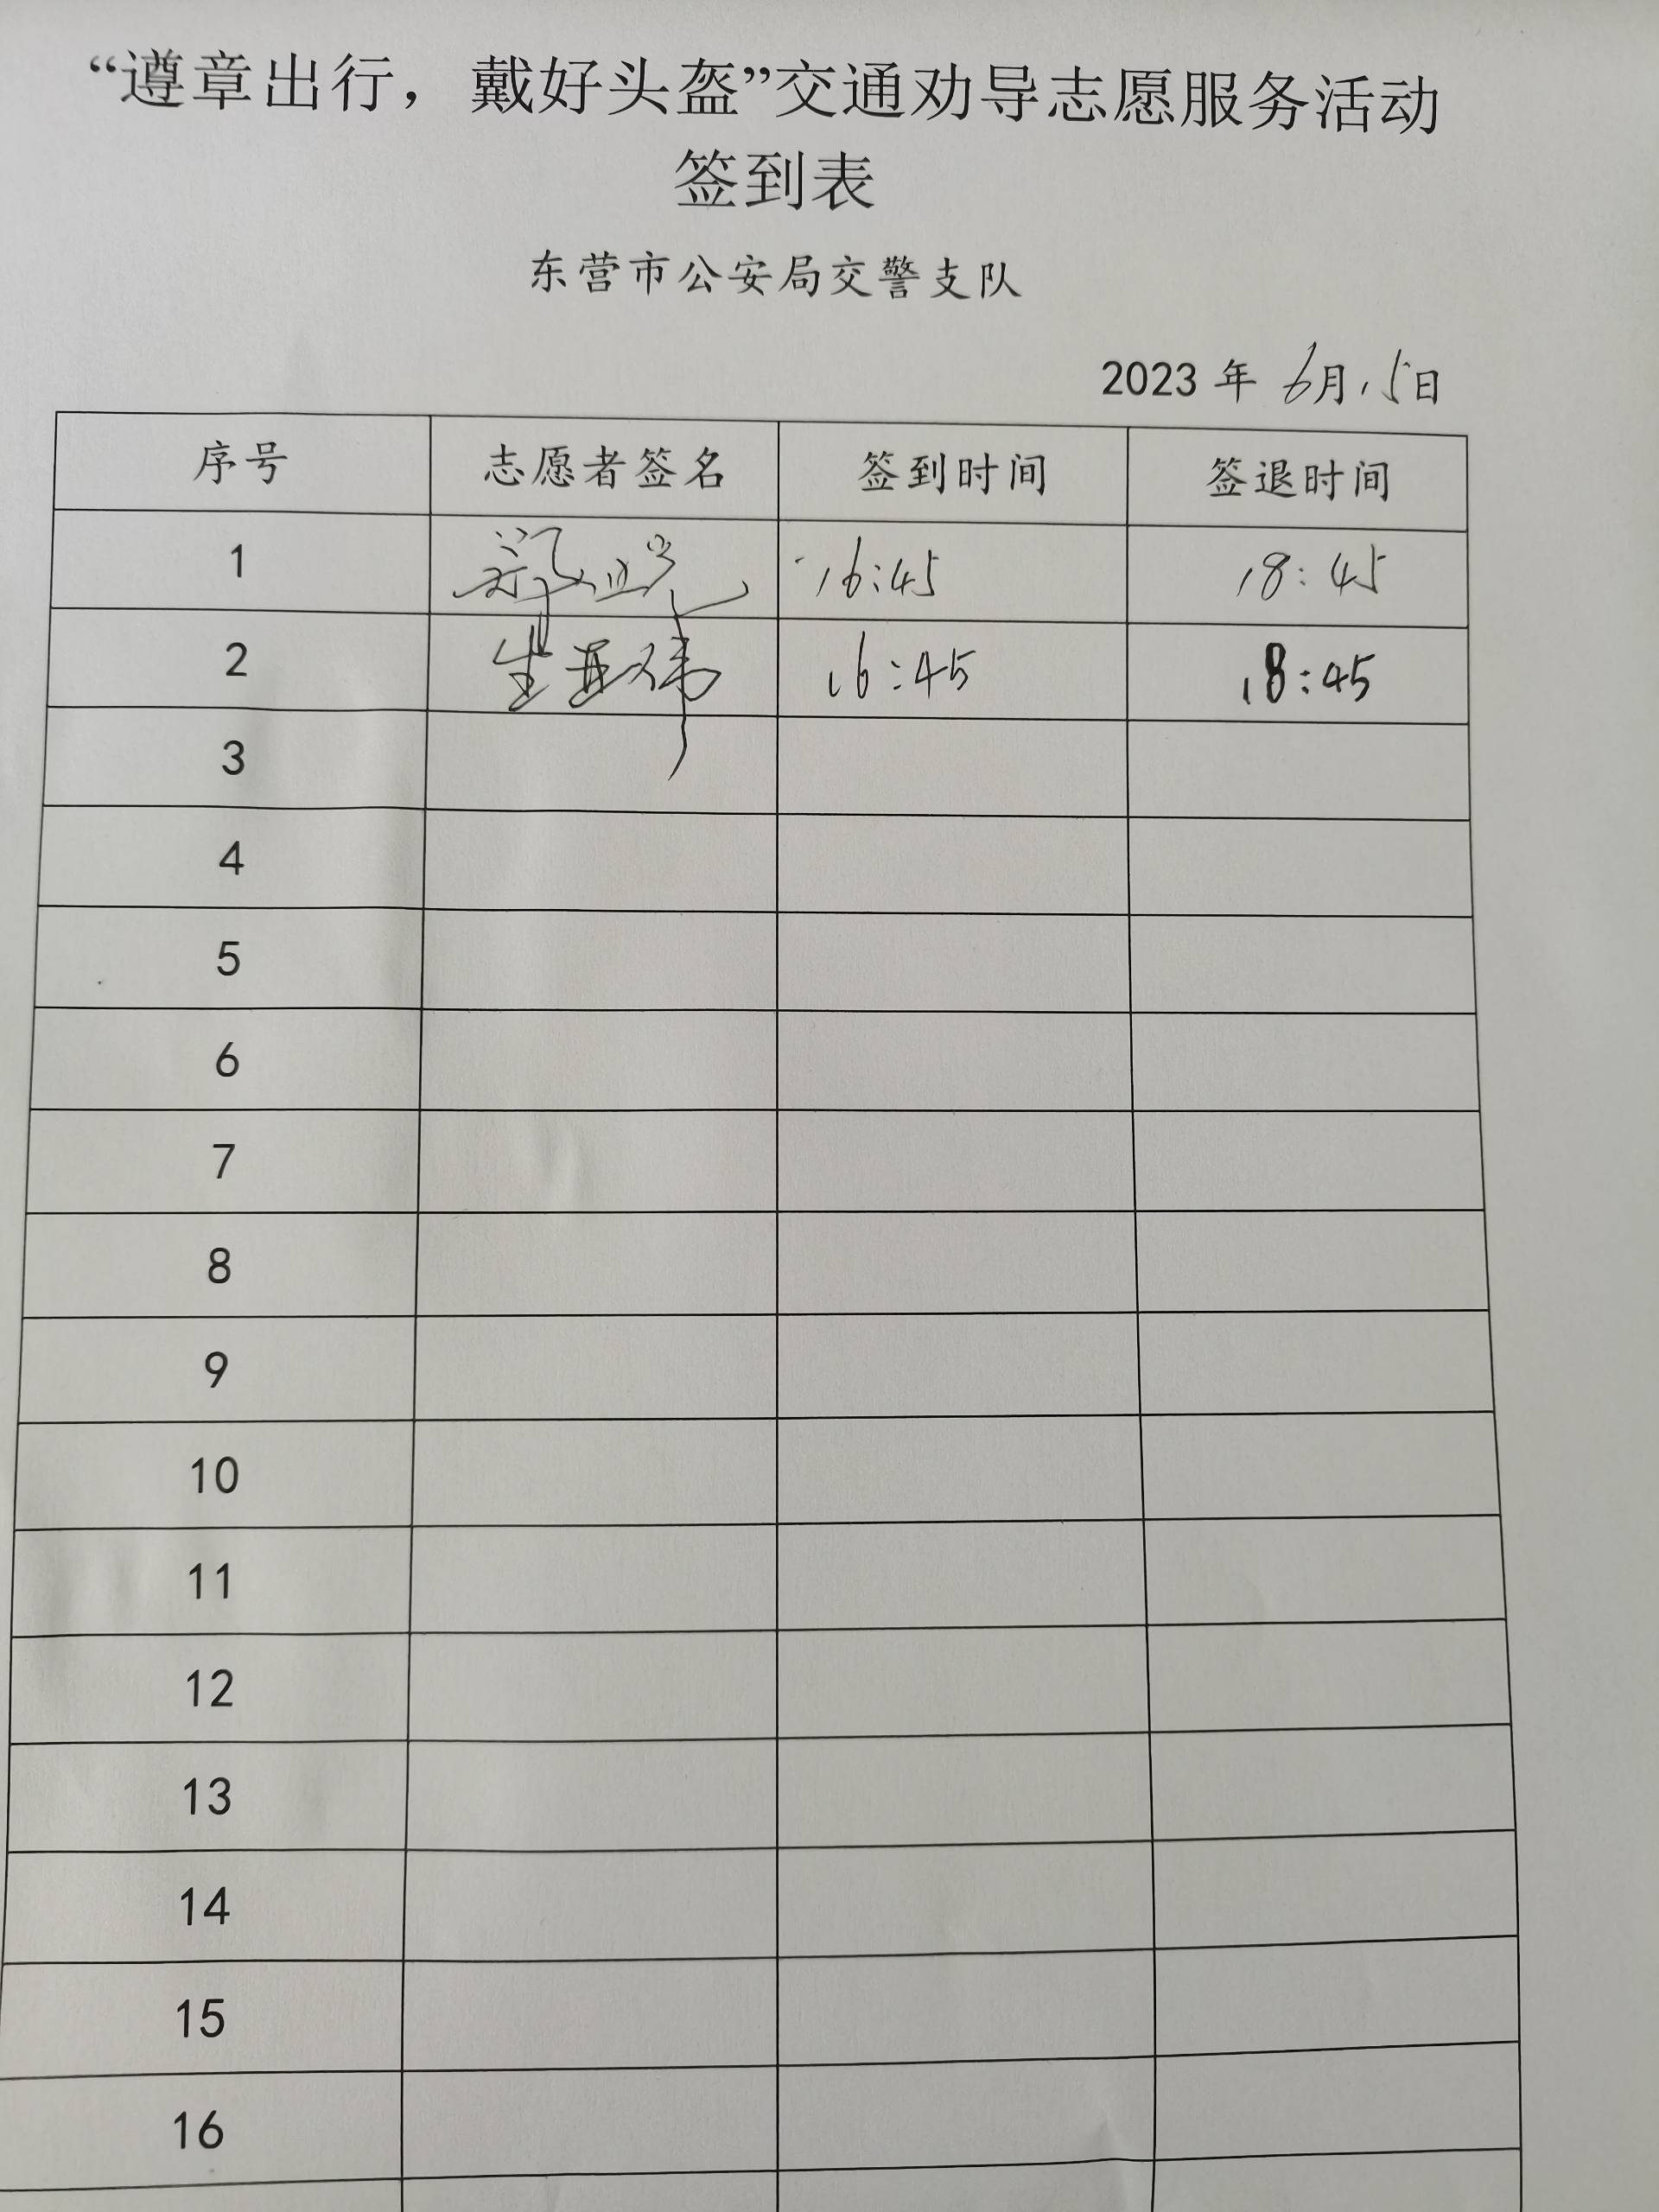 “遵章出行，戴好头盔”交通劝导志愿服务活动
签到表
东营市公安局交警支队
2023 年 6月15日
序号 志愿者签名 签到时间 签退时间
1 16:45 18:45
2 生亚伟 16:45 18:45
3
4
5
6
7
8
9
10
11
12
13
14
15
16